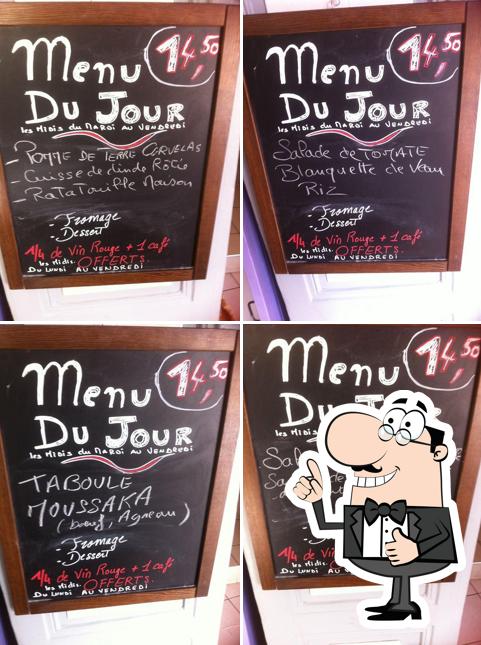 Menu 14,50
Du Jour
les Midis du Mardi au Vendredi
- Pomme de terre Cervelas
Cuisse de dinde Rôtie
- Ratatouille Maison
- Fromage
- Dessert
1/4 de Vin Rouge + 1 café
les Midis OFFERTS.
Du Lundi au Vendredi
Menu 14,50
Du Jour
les Midis du Mardi au Vendredi
Salade de Tomate
Blanquette de Veau
Riz
- Fromage
- Dessert
1/4 de Vin Rouge + 1 café
les Midis OFFERTS.
Du Lundi au Vendredi
Menu 14,50
Du Jour
les Midis du Mardi au Vendredi
TABOULE
MOUSSAKA
(boeuf, Agneau)
- Fromage
- Dessert
1/4 de Vin Rouge + 1 café
les Midis OFFERTS.
Du Lundi au Vendredi
Menu 14,50
Du
les Midis
1/4 de Vin
les Midis
Du Lundi au Vendredi